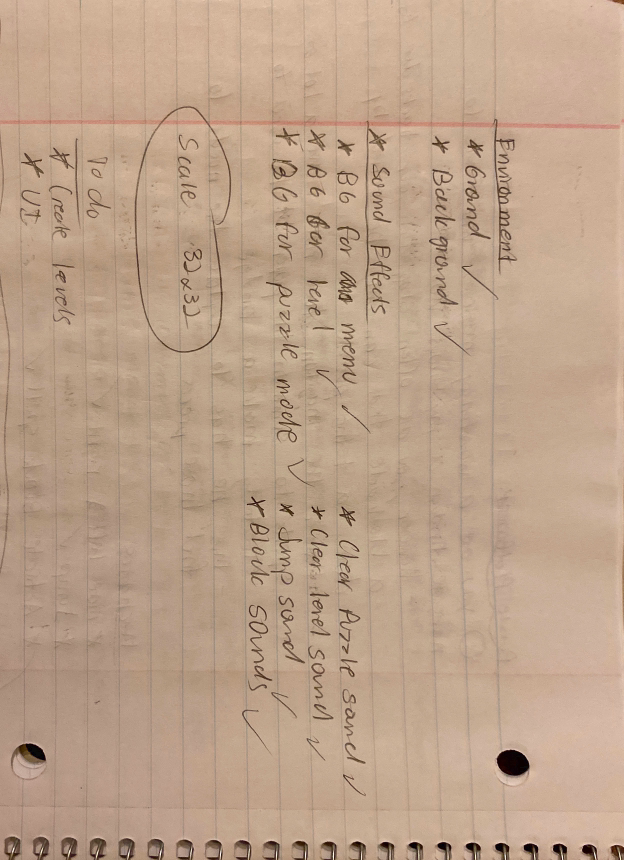 Environment
* Ground ✓
* Background ✓
* Sound Effects
* BG for menu ✓
* BG for level ✓
* BG for puzzle mode ✓
* Clear Puzzle sound ✓
* Clear level sound ✓
* Jump sound ✓
* Block sounds ✓
Scale 32x32
To do
* Create levels
* UI